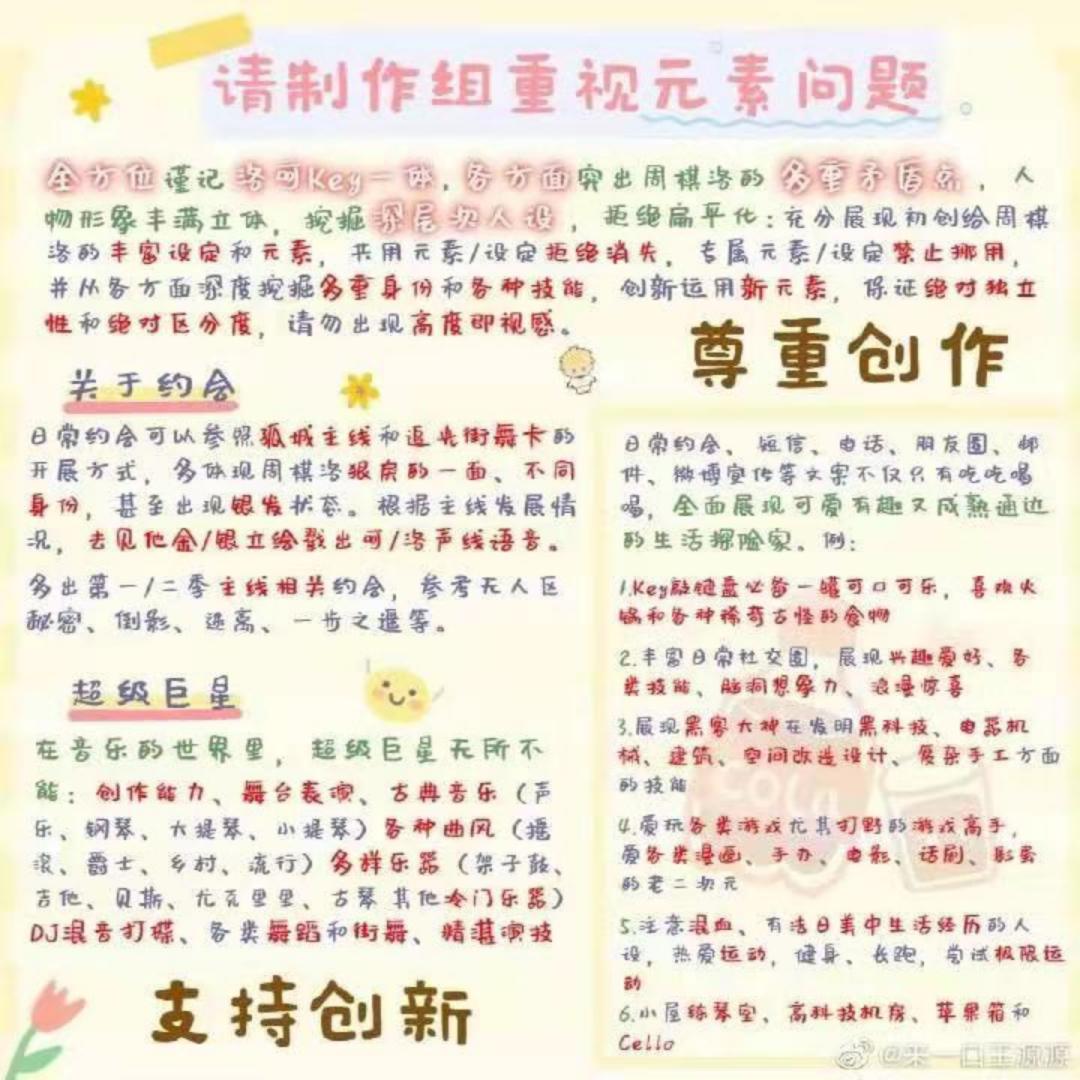 请制作组重视元素问题
全方位谨记洛可Key一体，各方面突出周棋洛的多重矛盾点，人
物形象丰满立体，挖掘深层次人设，拒绝扁平化：充分展现初创给周棋
洛的丰富设定和元素，共用元素/设定拒绝消失，专属元素/设定禁止挪用，
并从各方面深度挖掘多重身份和各种技能，创新运用新元素，保证绝对独立
性和绝对区分度，请勿出现高度即视感。
尊重创作
关于约会
日常约会可以参照孤城主线和逅光街舞卡的
开展方式，多体现周棋洛狠戾的一面、不同
身份，甚至出现银发状态。根据主线发展情
况，去见他金/银立绘戳出可/洛声线语音。
多出第一/二季主线相关约会，参考无人区
秘密、倒影、逃离、一步之遥等。
超级巨星
在音乐的世界里，超级巨星无所不
能：创作能力、舞台表演、古典音乐（声
乐、钢琴、大提琴、小提琴）各种曲风（摇
滚、爵士、乡村、流行）多样乐器（架子鼓、
吉他、贝斯、尤克里里、古琴其他冷门乐器）
DJ混音打碟、各类舞蹈和街舞、精湛演技
支持创新
日常约会、短信、电话、朋友圈、邮
件、微博宣传等文案不仅只有吃吃喝
喝，全面展现可爱有趣又成熟通达
的生活探险家。例：
1.Key敲键盘必备一罐可口可乐，喜欢火
锅和各种稀奇古怪的食物
2.丰富日常社交圈，展现兴趣爱好、各
类技能、脑洞想象力、浪漫惊喜
3.展现黑客大神在发明黑科技、电器机
械、建筑、空间改造设计、复杂手工方面
的技能
4.爱玩各类游戏尤其打野的游戏高手，
爱各类漫画、手办、电影、话剧、彩蛋
的老二次元
5.注意混血、有法日美中生活经历的人
设，热爱运动，健身、长跑，尝试极限运
动
6.小屋练琴室、高科技机房、苹果箱和
Cello
COLA
@来一口王源源